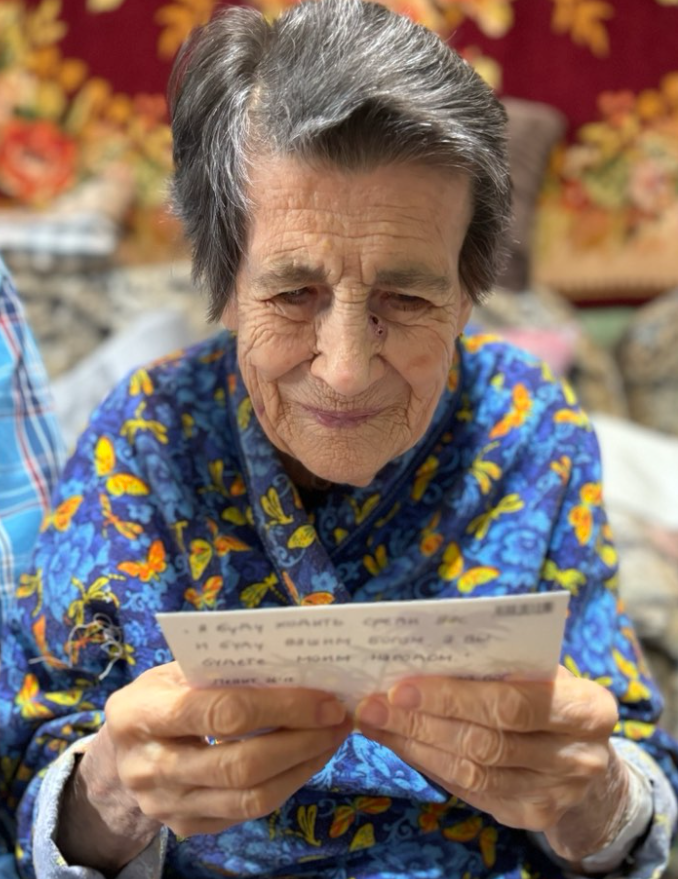 Я БУДУ ХОДИТЬ СРЕДИ ВАС
И БУДУ ВАШИМ БОГОМ А ВЫ
БУДЕТЕ МОИМ НАРОДОМ
ЛЕВИТ